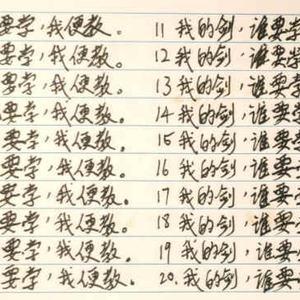 要学，我便教。 11 我的剑，谁要学
要学，我便教。 12 我的剑，谁要学
要学，我便教。 13 我的剑，谁要学
要学，我便教。 14 我的剑，谁要学
要学，我便教。 15 我的剑，谁要学
要学，我便教。 16 我的剑，谁要学
要学，我便教。 17 我的剑，谁要学
要学，我便教。 18 我的剑，谁要学
要学，我便教。 19 我的剑，谁要学
要学，我便教。 20. 我的剑，谁要学